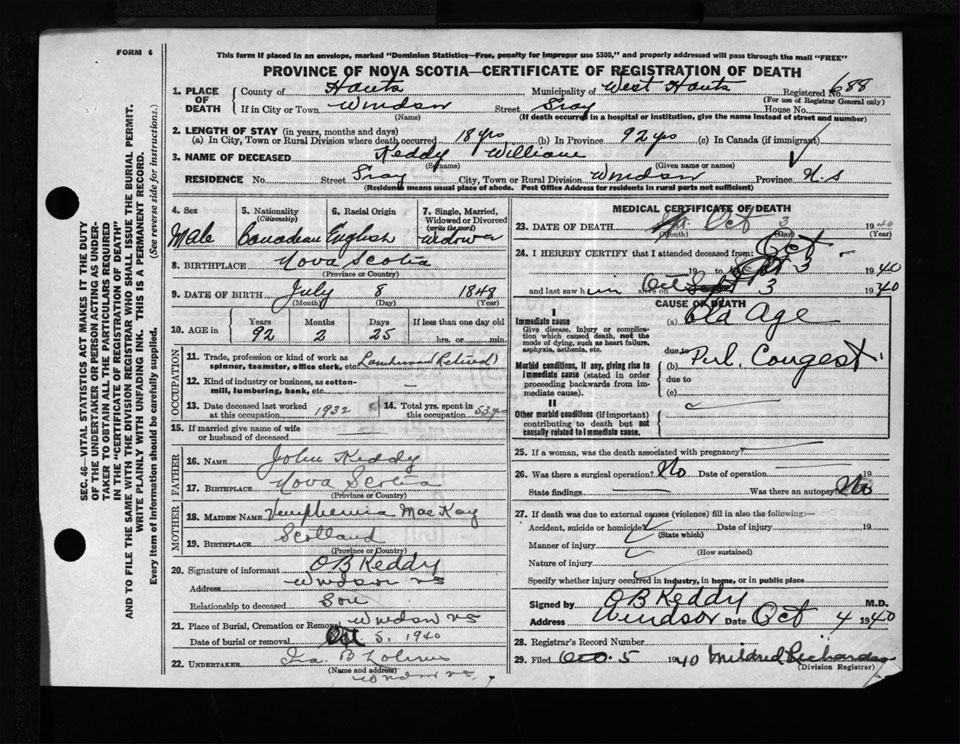 FORM 6
This form if placed in an envelope, marked "Dominion Statistics—Free, penalty for improper use $300," and properly addressed will pass through the mail "FREE"
PROVINCE OF NOVA SCOTIA—CERTIFICATE OF REGISTRATION OF DEATH
SEC. 46—VITAL STATISTICS ACT MAKES IT THE DUTY
OF THE UNDERTAKER OR PERSON ACTING AS UNDER-
TAKER TO OBTAIN ALL THE PARTICULARS REQUIRED
IN THE "CERTIFICATE OF REGISTRATION OF DEATH"
AND TO FILE THE SAME WITH THE DIVISION REGISTRAR WHO SHALL ISSUE THE BURIAL PERMIT.
WRITE PLAINLY WITH UNFADING INK. THIS IS A PERMANENT RECORD.
Every item of information should be carefully supplied. (See reverse side for instructions.)
1. PLACE OF DEATH
County of Hants Municipality of West Hants Registered No. 688
(For use of Registrar General only)
If in City or Town Windsor Street Gray House No.
(Name) (If death occurred in a hospital or institution, give the name instead of street and number)
2. LENGTH OF STAY (in years, months and days)
(a) In City, Town or Rural Division where death occurred 18 yrs (b) In Province 92 yrs (c) In Canada (if immigrant)
3. NAME OF DECEASED Keddy William
(Surname) (Given name or names)
RESIDENCE No. Street Gray City, Town or Rural Division Windsor Province N.S
(Residence means usual place of abode. Post Office Address for residents in rural parts not sufficient)
4. Sex Male
5. Nationality (Citizenship) Canadian
6. Racial Origin English
7. Single, Married, Widowed or Divorced (write the word) Widower
8. BIRTHPLACE Nova Scotia
(Province or Country)
9. DATE OF BIRTH July 8 1848
(Month) (Day) (Year)
10. AGE in Years 92 Months 2 Days 25 If less than one day old
hrs. or min.
OCCUPATION
11. Trade, profession or kind of work as spinner, teamster, office clerk, etc. (Retired)
12. Kind of industry or business, as cotton-mill, lumbering, bank, etc. —
13. Date deceased last worked at this occupation 1932
14. Total yrs. spent in this occupation 53 yrs
15. If married give name of wife or husband of deceased
FATHER
16. NAME John Keddy
17. BIRTHPLACE Nova Scotia
(Province or Country)
MOTHER
18. MAIDEN NAME MacKay
19. BIRTHPLACE Scotland
(Province or Country)
20. Signature of informant OB Keddy
Address Windsor NS
Relationship to deceased Son
21. Place of Burial, Cremation or Removal Windsor NS
Date of burial or removal Oct 5. 1940
22. UNDERTAKER Ira. B
(Name and address)
Windsor NS.
MEDICAL CERTIFICATE OF DEATH
23. DATE OF DEATH Oct 3 1940
(Month) (Day) (Year)
24. I HEREBY CERTIFY that I attended deceased from: Oct
19 to Oct 3 1940
and last saw him alive on Oct 3 1940
CAUSE OF DEATH
I
Immediate cause
Give disease, injury or complication which caused death, not the mode of dying, such as heart failure, asphyxia, asthenia, etc.
(a) Old Age
due to
Morbid conditions, if any, giving rise to immediate cause (stated in order proceeding backwards from immediate cause)
(b) Pul. Congest.
due to
(c)
II
Other morbid conditions (if important) contributing to death but not causally related to immediate cause.
25. If a woman, was the death associated with pregnancy?
26. Was there a surgical operation? No Date of operation 19
State findings Was there an autopsy? No
27. If death was due to external causes (violence) fill in also the following:—
Accident, suicide or homicide? Date of injury 19
(State which)
Manner of injury
(How sustained)
Nature of injury
Specify whether injury occurred in industry, in home, or in public place
Signed by OB Keddy M.D.
Address Windsor Date Oct 4 1940
28. Registrar's Record Number
29. Filed Oct. 5 1940 Mildred Richards
(Division Registrar)